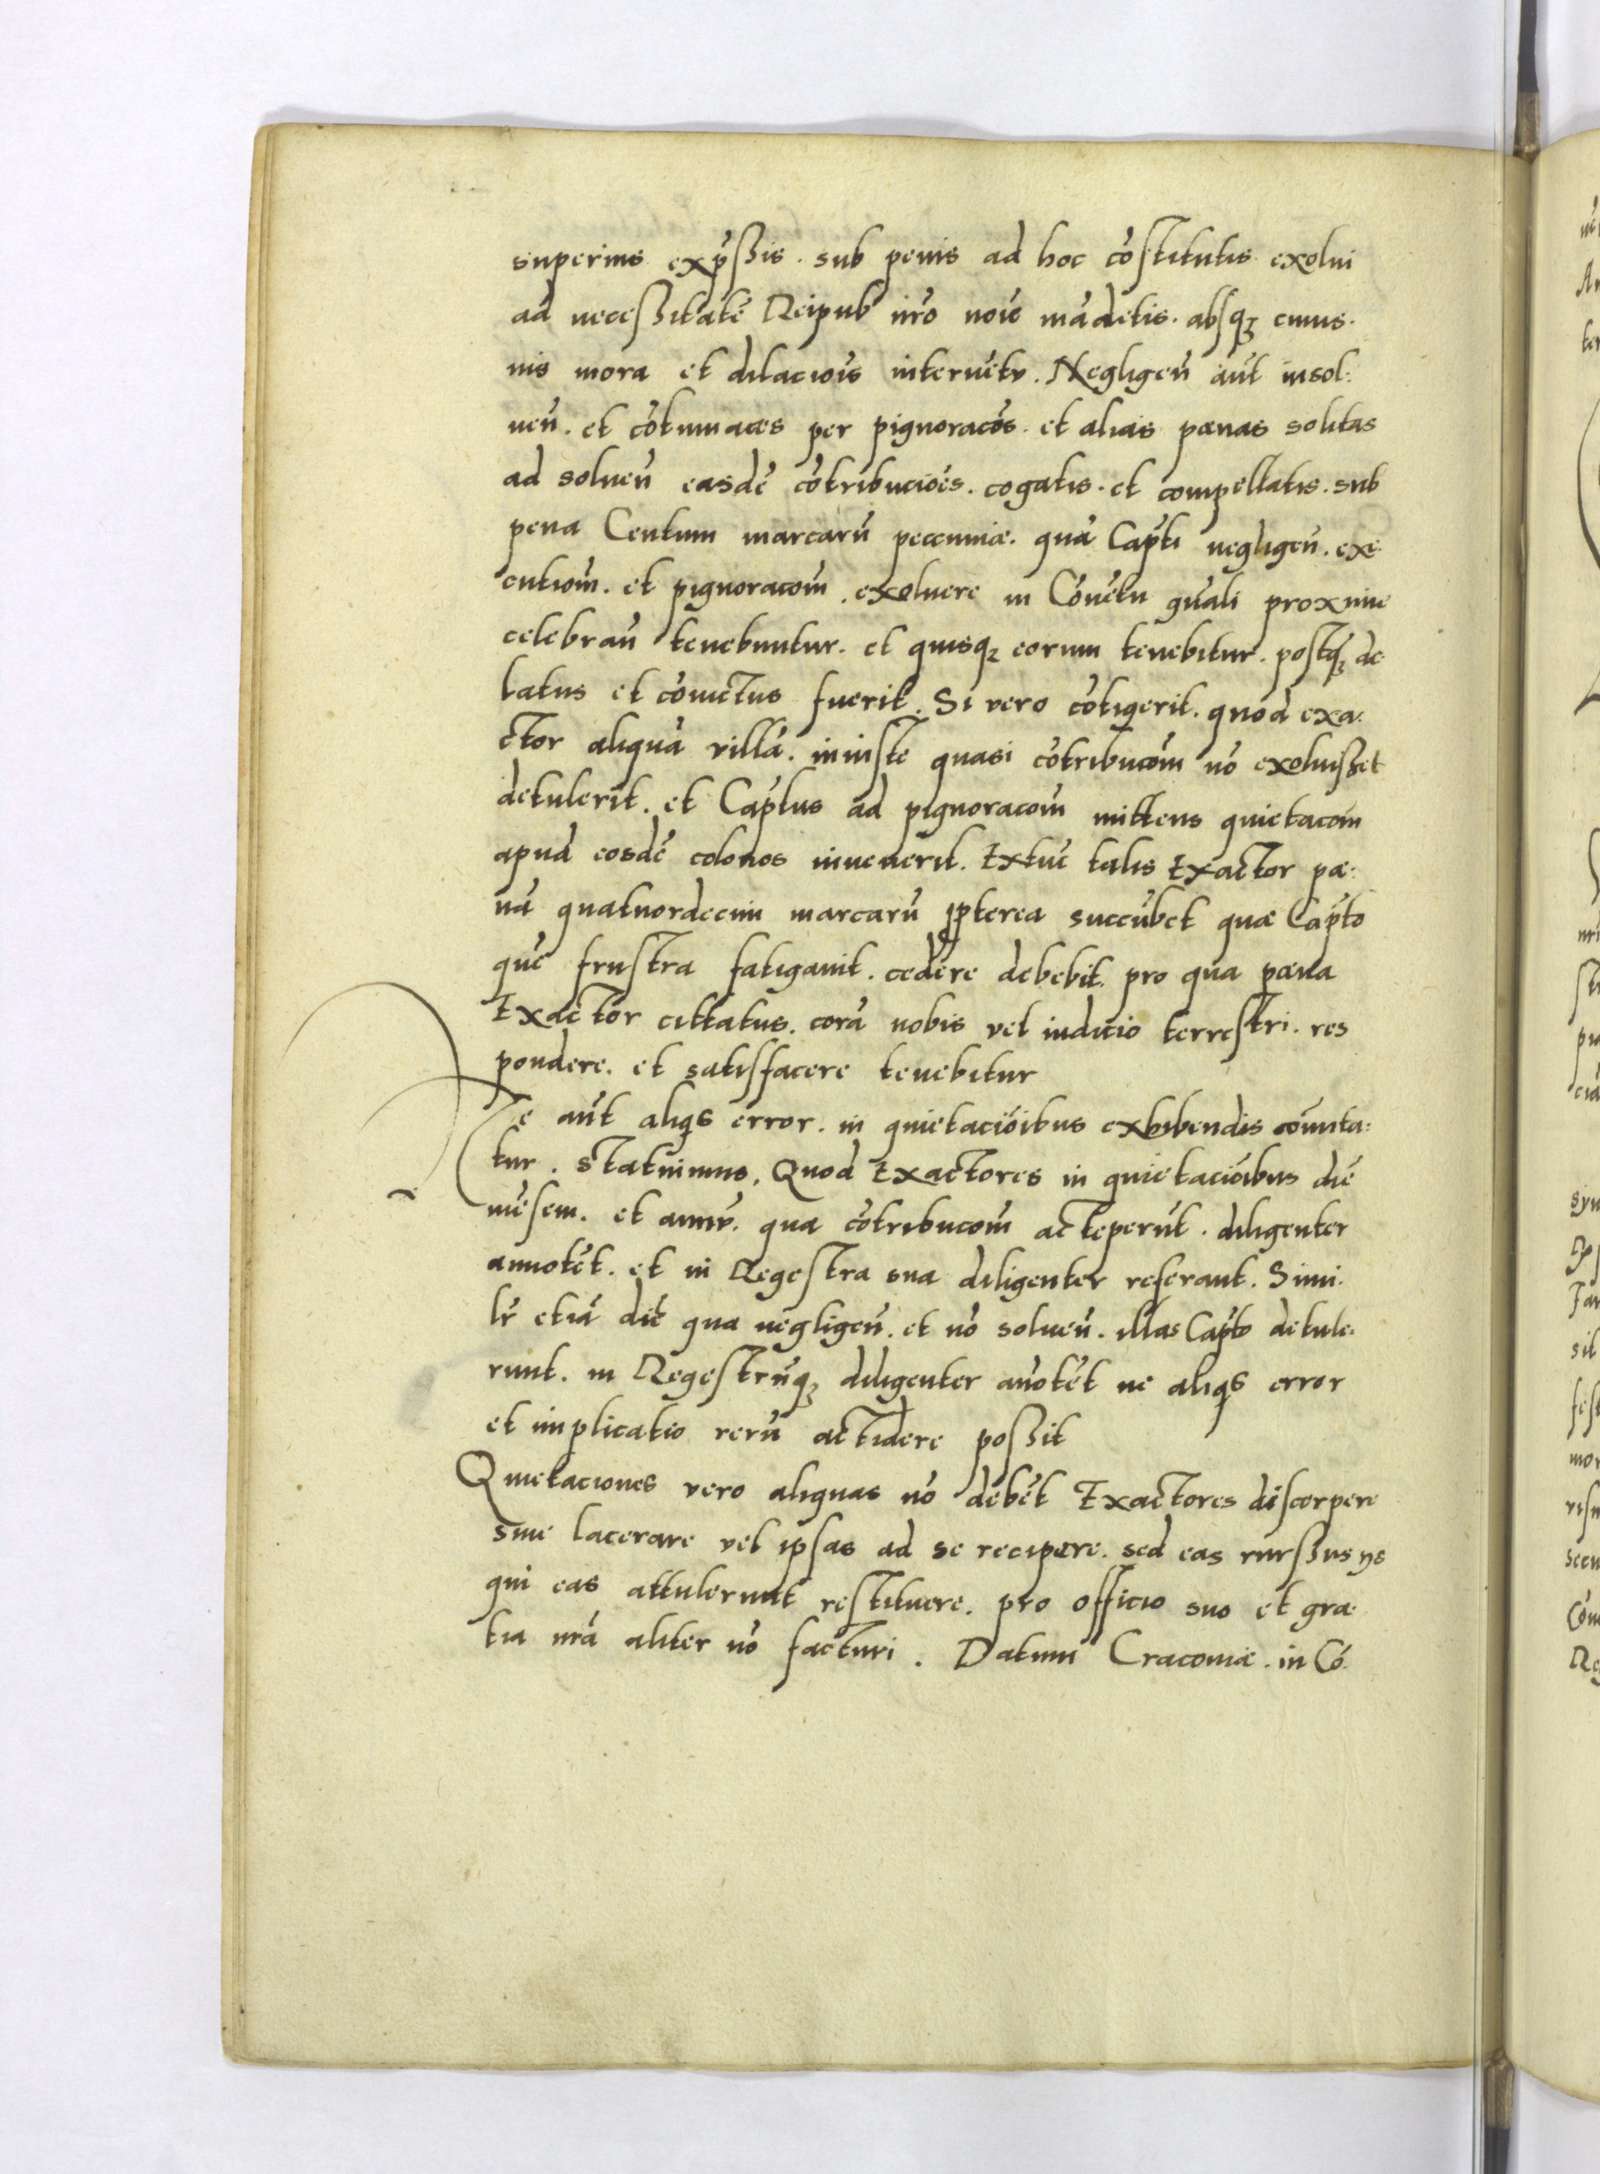 superius exp̃ſſis. sub penis ad hoc cõſtitutis exolui
ad neceſſitatẽ Reipub nr̃o noĩe mãdetis. abſqꝫ cuius-
uis mora et dilaciõis interuẽtu. Negligeñ aũt insol-
ueñ. et cõtumaces per pignoracõs. et alias pœnas solitas
ad solueñ easdẽ cõtribuciões. cogatis. et compellatis. sub
pena Centum marcarũ peccuniæ. quã Capt̃i negligeñ. exe-
cutiom̃. et pignoracom̃. exoluere in Cõuẽtu gñali proxime
celebrañ tenebuntur. et quisqꝫ eorum tenebitur. poſtqꝫ de-
latus et cõuictus fuerit. Si vero cõtigerit. quod exa-
ctor aliquã villã. iniuſte quasi cõtribucom̃ nõ exoluiſſet
detulerit. et Capt̃us ad pignoracom̃ mittens quietacom̃
apud eosdẽ colonos inuenerit. Extũc talis Exactor pœ-
nã quatuordecim marcarũ ꝓpterea succũbet quæ Capt̃o
quẽ fruſtra fatigauit. cedere debebit. pro qua pœna
Exactor cittatus. corã nobis vel iudicio terreſtri. res
pondere. et satiſfacere tenebitur
Ne aũt aliqs error. in quietaciõibus exhibendis cõmita-
tur. Statuimus. Quod Exactores in quietaciõibus diẽ
mẽsem. et annũ. qua cõtribucom̃ acceperũt. diligenter
annotẽt. et in Regeſtra sua diligenter referant. Simi-
lr̃ etiã diẽ qua negligeñ. et nõ solueñ. illas Capt̃o detule-
runt. in Regeſtrũqꝫ diligenter añotẽt ne aliqs error
et implicatio rerũ accidere poſſit
Quietaciones vero aliquas nõ debẽt Exactores diſcerpere
siue lacerare vel ipſas ad se recipere. sed eas rurſſus ijs
qui eas attulerunt reſtituere. pro officio suo et gra-
tia nr̃a aliter nõ facturi. Datum Cracouiæ. in Cõ-